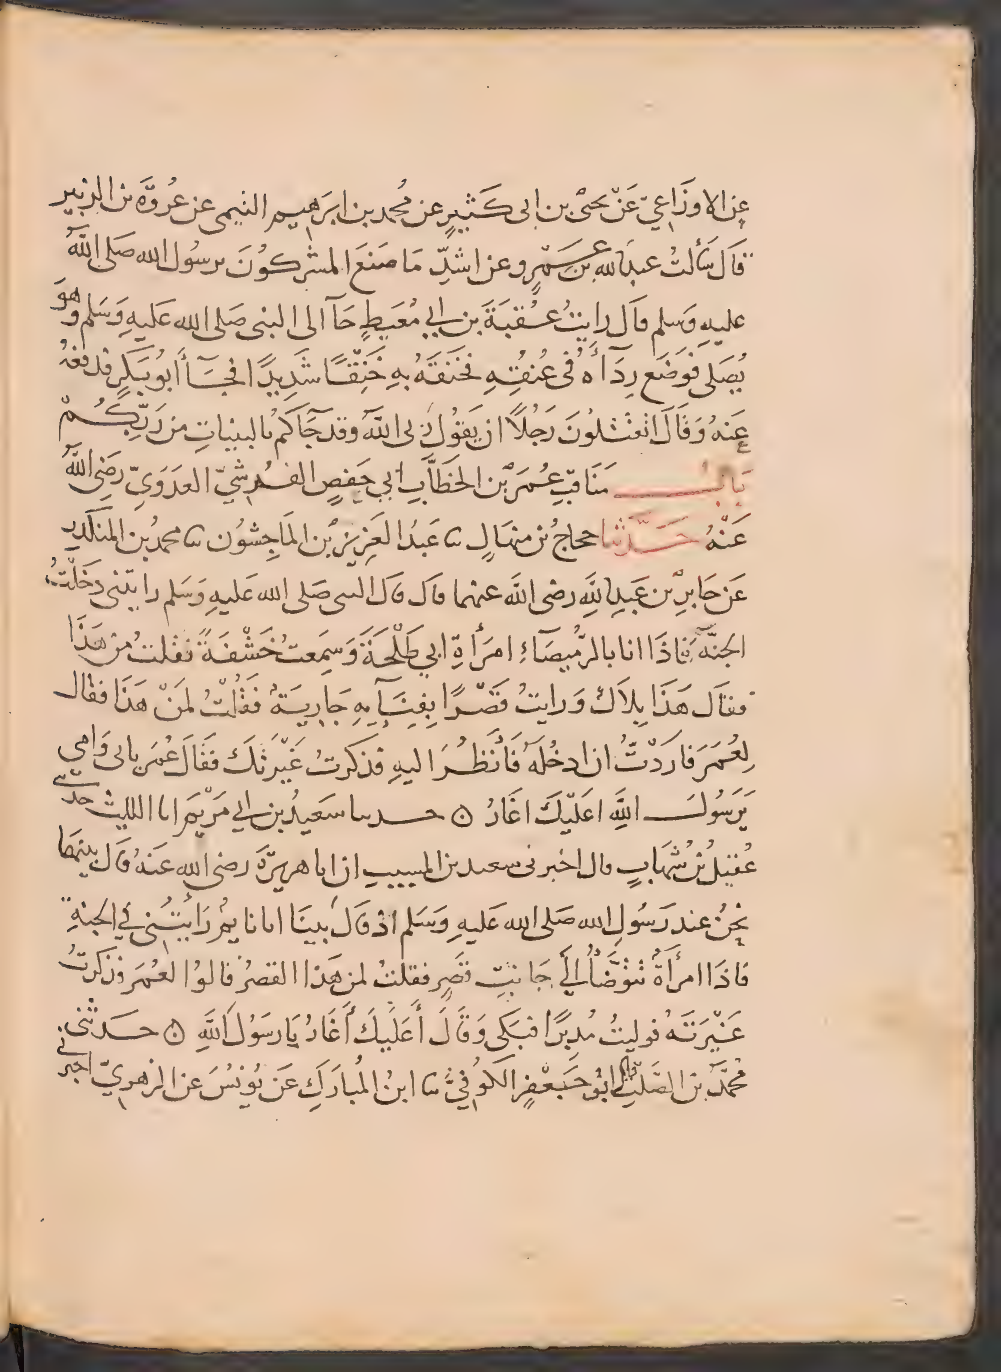 عن الاوزَاعِيّ عَنْ يحيىٰ بن ابى كَثيرٍ عن مُحمد بن ابرَاهيم التيمى عن عُروَةَ بن الزبير
قال سَألتُ عبدَ الله بن عَمْرٍو عن اشدِّ مَا صَنعَ المشركُونَ برسُول الله صَلى اللهُ
عليهِ وَسَلم قال رايتُ عُقبَةَ بن ابي مُعَيطٍ جَآ الى النبى صَلى الله عَليهِ وَسَلم وهُوَ
يُصَلى فوَضَع رِدَآءهُ فى عُنقِهِ فخنَقهُ بهِ خَنْقًا شَدِيدًا فجَآءَ ابُو بَكرٍ فدفعَهُ
عنهُ وَقالَ اتقتلُونَ رَجُلاً ان يقُول ربى اللهُ وَقد جَآكم بالبيناتِ من رَبكُمْ
بَابُ مَنَاقبِ عُمَرَ بن الخطّابِ ابي حَفصٍ القُرشيّ العَدَوِيّ رَضِىَ اللهُ
عَنْهُ حَدَّثنا حجاجُ بن منهَالٍ ثنا عَبدُ العَزيز بن المَاجِشُون ثنا محمدُ بن المنكدِر
عَن جَابرِ بن عَبدِ اللهِ رضى اللهُ عنهما قال قال النبى صَلى الله عَليهِ وَسَلم رايتنى دَخلتُ
الجنةَ فاذَا انا بالرّميصَآءِ امرَأةِ ابي طَلْحَةَ وَسَمِعتُ خَشْفَةً فقلتُ من هَذَا
فقال هَذَا بِلاَلٌ وَرايتُ قَصْرًا بِفِنَآيهِ جَاريَةٌ فقُلْتُ لمَنْ هَذَا فقال
لِعُمَرَ فاردْتُ ان ادخُلَهُ فَأنظُرَ اليهِ فذكرتُ غَيْرتَكَ فقَالَ عُمَر بابى وَامى
يَرَسُولَ اللهِ اعَليْكَ اغَارُ ۝ حدثنا سَعيدُ بن ابي مَرْيَم انا الليث حدثني
عُقيلُ بنُ شهَابٍ قال اخبرنى سعيد بن المسيب ان ابا هريرَةَ رضى الله عنهُ قال بينما
نحنُ عند رَسُولِ الله صَلى الله عَليهِ وَسَلم اذ قال بينَا انا نايمٌ رَايتُنى في الجنةِ
فاذَا امرأةٌ تتوَضّأُ الى جَانبِ قصرٍ فقلتُ لمن هَذا القصرُ قالوُا لعُمَرَ فذكرتُ
غَيْرَتَهُ فوليتُ مُدبِرًا فبَكى وَقَالَ أَعَليكَ أَغَارُ يَا رَسُولَ اللهِ ۝ حَدثنى
محمّدُ بن الصَّلتِ ابُو جَعْفرٍ الكوُفىُّ ثنا ابنُ المُبارَكِ عَن يُونسَ عن الزهرِيّ اخبرنى